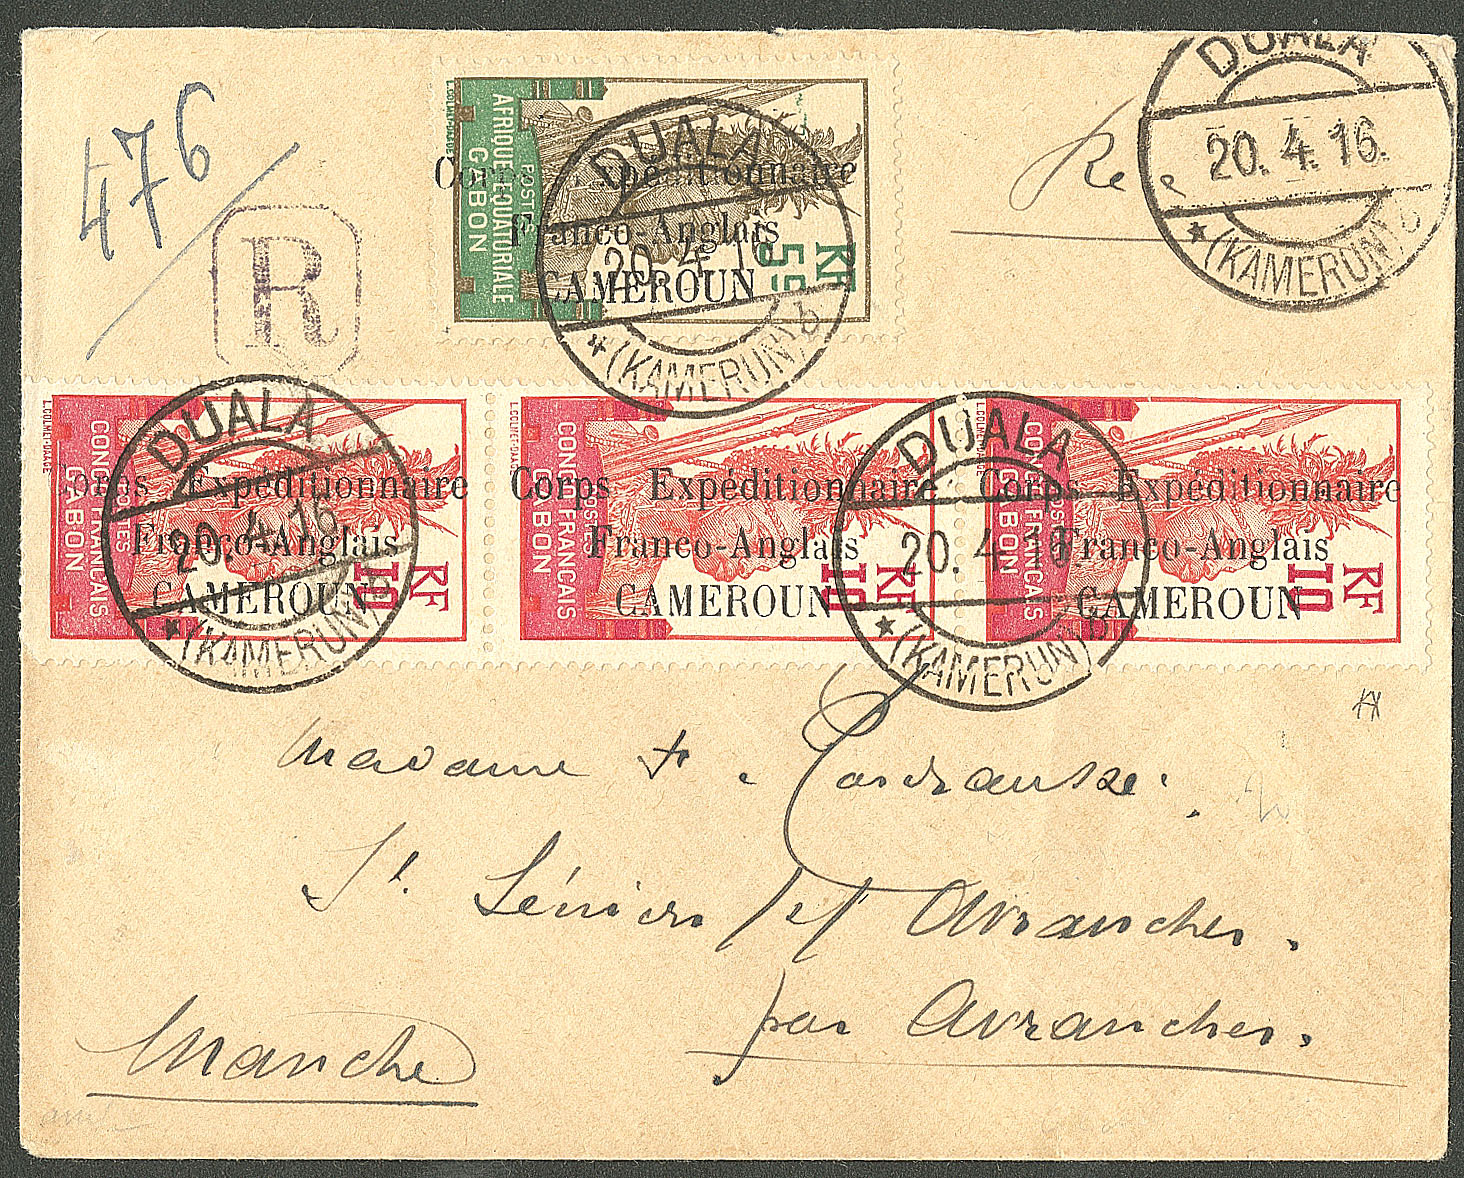 476
R
Re
DUALA
20. 4. 16.
* (KAMERUN) b
AFRIQUE EQUATORIALE
GABON
POSTES
RF
5c
Corps Expéditionnaire
Franco-Anglais
CAMEROUN
DUALA
20. 4. 16
* (KAMERUN) b
CONGO FRANÇAIS
GABON
POSTES
RF
10
Corps Expéditionnaire
Franco-Anglais
CAMEROUN
DUALA
20. 4. 16
* (KAMERUN) b
CONGO FRANÇAIS
GABON
POSTES
RF
10
Corps Expéditionnaire
Franco-Anglais
CAMEROUN
CONGO FRANÇAIS
GABON
RF
10
Corps Expéditionnaire
Franco-Anglais
CAMEROUN
DUALA
20. 4. 16
* (KAMERUN) b
Madame
St. Sénier s/s Avranches.
par Avranches.
Manche